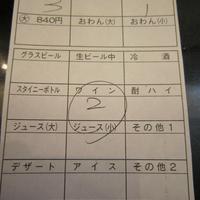 3 1
(大) 840円 おわん(大) おわん(小)
グラスビール 生ビール中 冷酒
スタイニーボトル ワイン 酎ハイ
2
ジュース(大) ジュース(小) その他1
デザート アイス その他2